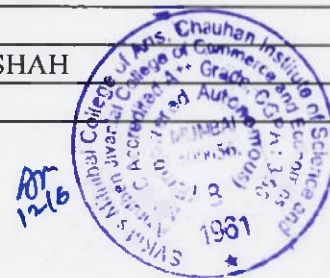 SHAH
SVKM's Mithibai College of Arts, Chauhan Institute of Science and
Amrutben Jivanlal College of Commerce and Economics
Accredited A++ Grade, CGPA: 3.56
Autonomous)
MUMBAI
1961
12/6